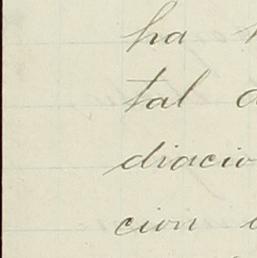 ha
tal
diacio
cion